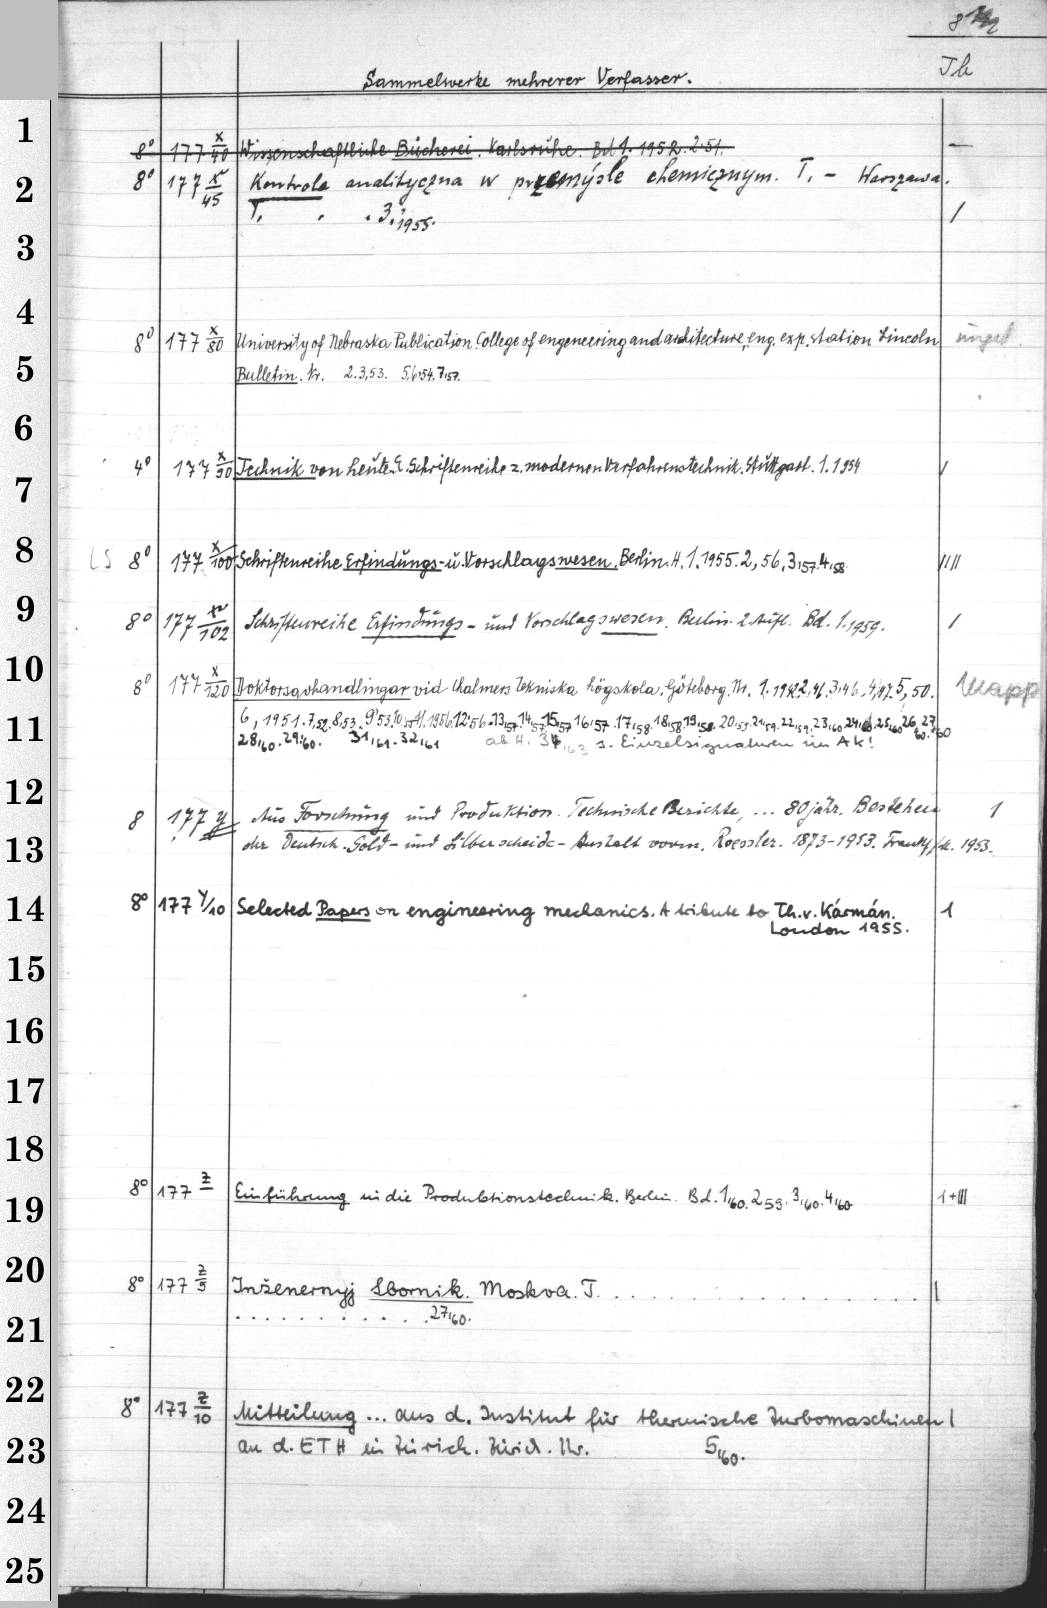 8
Tb
Sammelwerke mehrerer Verfasser.
1
8° 177 x/40 Wissenschaftliche Bücherei. Karlsruhe. Bd 1. 1952. 2.51. —
2
8° 177 x/45 Kontrola analityczna w przemýsle chemicznym. T. - Warszawa.
T. . . 3. 1955. /
3
4
8° 177 x/80 University of Nebraska Publication College of engeneering and architecture, eng. exp. station Lincoln
5
Bulletin. Nr. 2.3,53. 5,6,54. 7,57.
6
4° 177 x/90 Technik von heute. Schriftenreihe z. modernen Verfahrenstechnik. Stuttgart. 1. 1954 /
7
8
LS 8° 177 x/100 Schriftenreihe Erfindungs- u. Vorschlagswesen. Berlin. H. 1. 1955. 2, 56. 3,57. 4,58 ////
9
8° 177 x/102 Schriftenreihe Erfindungs- und Vorschlagswesen. Berlin. 2. Aufl. Bd. 1. 1959. /
10
8° 177 x/120 Doktorsavhandlingar vid Chalmers Tekniska högskola. Göteborg. Nr. 1. 1942. 2,46. 3,46. 4,47. 5, 50. Mapp
11
6, 1951. 7,52. 8,53. 9,53. 12,56. 13,57. 14,57. 15,57 16,57. 17,58. 18,58. 19,58. 20,59. 21,59. 22,59. 23,60. 24,60. 25,60 26,60. 27,60
28,60. 29,60. 31,61. 32,61 ab H. 34,63 s. Einzelsignaturen im AK!
12
8 177 y Aus Forschung und Produktion. Technische Berichte, ... 80jähr. Bestehen 1
13
der Deutsch. Gold- und Silberscheide-Anstalt vorm. Roessler. 1873-1953. Frankf/M. 1953.
14
8° 177 y/10 Selected Papers on engineering mechanics. A tribute to Th. v. Kármán. 1
London 1955.
15
16
17
18
8° 177 z Einführung in die Produktionstechnik. Berlin. Bd. 1,60. 2,59. 3,60. 4,60 1+III
19
20
8° 177 z/5 Inženernyj Sbornik. Moskva. T. . . . . . . . . . . . . . . . . |
. . . . . . . . . . 27,60.
21
22
8° 177 z/10 Mitteilung ... aus d. Institut für thermische Turbomaschinen |
23
an d. ETH in Zürich. Zürich. Nr. 5,60.
24
25